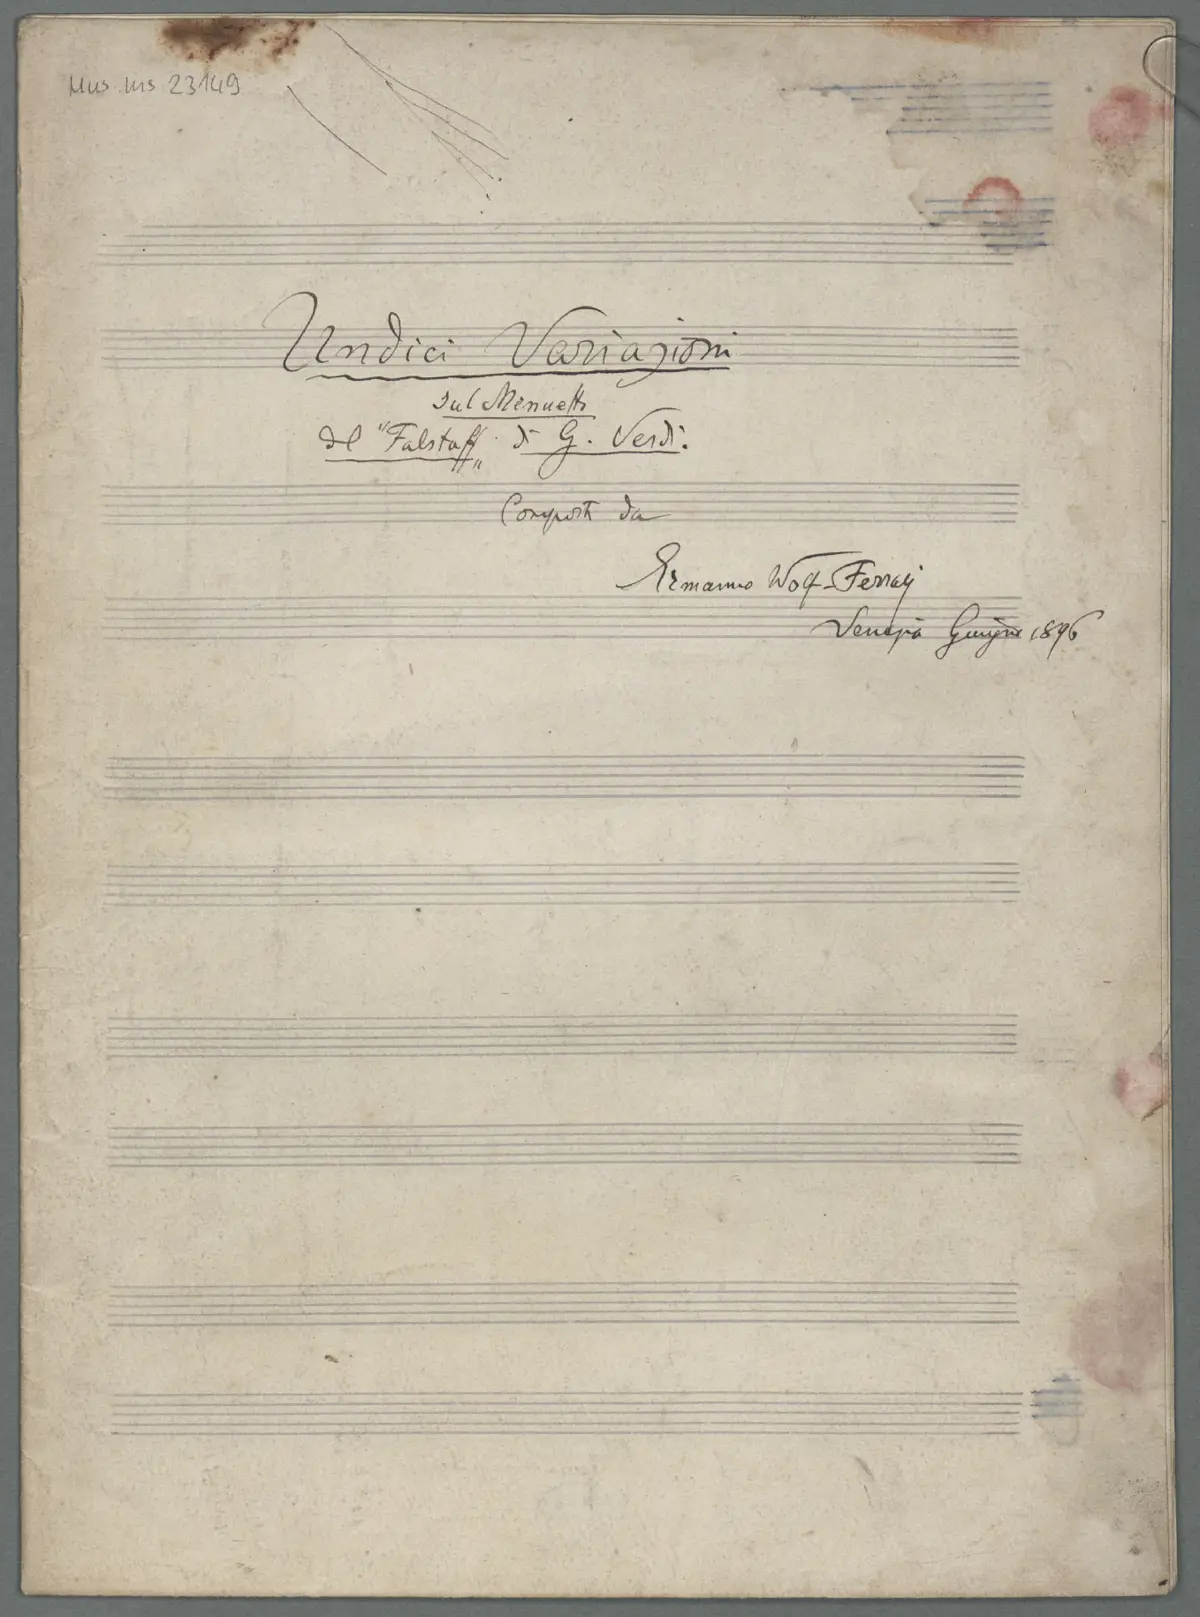 Mus. ms 23149
Undici Variazioni
sul Menuetto
del "Falstaff" di G. Verdi.
Composti da
Ermanno Wolf-Ferrari
Venezia Giugno 1896